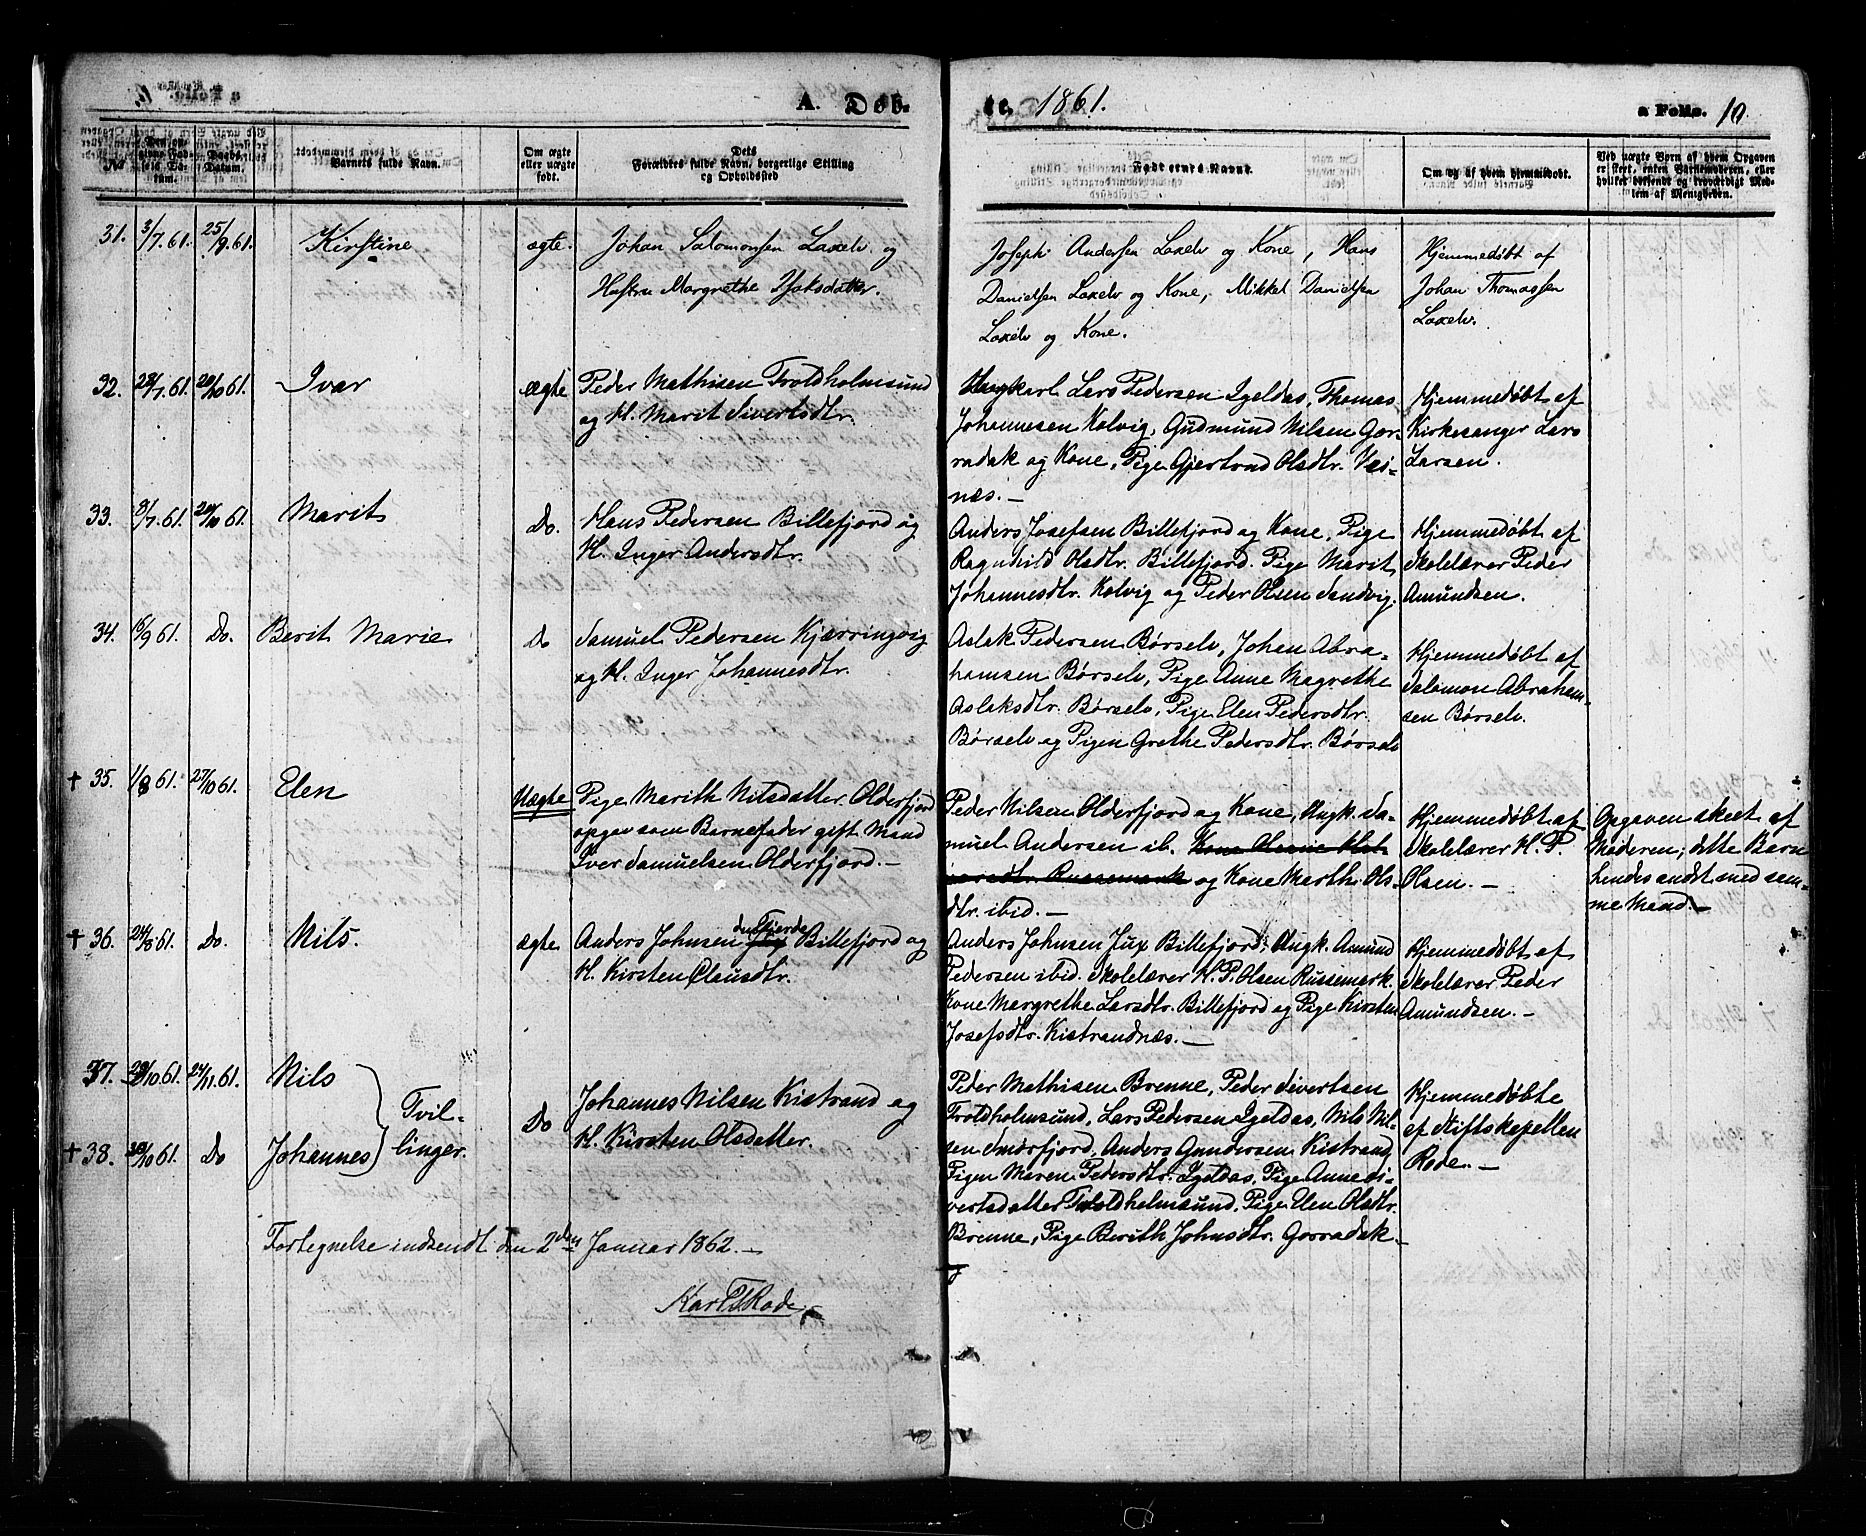 A. Døb-
te, 1861.
a Folio. 10.
No
Den an-
givne Fød-
sels Da-
tum.
Daabs
Datum.
Barnets fulde Navn.
Om ægte
eller uægte
født.
Dets
Forældres fulde Navn, borgerlige Stilling
og Opholdssted
Faddernes Navne.
Om og af hvem hjemmedøbt.
Ved uægte Børn af hvem Opgaven
er skeet, enten Barnemoderen, eller
hvilket bosiddende og troværdigt Med-
lem af Menigheden.
31. 3/7. 61. 25/9. 61. Kirstine ægte. Johan Salomonsen Laxelv og
Hustru Margrethe Isaksdatter.
Joseph Andersen Laxelv og Kone, Hans
Danielsen Laxelv og Kone, Mikkel Danielsen
Laxelv og Kone.
Hjemmedøbt af
Johan Thomassen
Laxelv.
32. 28/7. 61. 20/10 61. Ivar ægte Peder Mathisen Troldholmsund
og H. Marit Sivertsdtr.
Ungkarl Lars Pedersen Igeldas, Thomas
Johannesen Kolvig, Gudmund Nilsen Gor-
radak og Kone, Pige Gjertrud Olsdtr. Væi-
næs. —
Hjemmedøbt af
Kirkesanger Lars
Larsen.
33. 8/7. 61. 20/10 61. Marit Do. Hans Pedersen Billefjord og
H. Inger Andersdtr.
Anders Josefsen Billefjord og Kone, Pige
Ragnhild Olsdtr. Billefjord. Pige Marit
Johannesdtr. Kolvig og Peder Olsen Sandvig.
Hjemmedøbt af
Skolelærer Peder
Amundsen.
34. 6/9 61. Do. Berit Marie Do Samuel Pedersen Kjærringvig
og H. Inger Johannesdtr.
Aslak Pedersen Børselv, Johan Abra-
hamsen Børselv, Pige Anne Magrethe
Aslaksdtr. Børselv, Pige Elen Pedersdtr.
Børselv og Pigen Grethe Pedersdtr. Børselv
Hjemmedøbt af
Salomon Abraham-
sen Børselv.
+ 35. 1/8 61. 27/10 61. Elen Uægte Pige Marith Nilsdatter Olderfjord
opgav som Barnefader gift Mand
Iver Samuelsen Olderfjord. —
Peder Nilsen Olderfjord og Kone, Ungk. Sa-
muel Andersen ib. Kone
Russemark og Kone Marth. Ols-
dtr. ibid. —
Hjemmedøbt af
Skolelærer H. P.
Olsen. —
Opgaven skeet af
Moderen; dette Barn
hendes andet med sam-
me Mand. —
+ 36. 24/8 61. Do. Nils. ægte. Anders Johnsen den Fjerde Jux Billefjord og
H. Kirsten Clausdtr.
Anders Johnsen Jux Billefjord, Ungk. Amund
Pedersen ibid. Skolelærer H. P. Olsen Russemark.
Kone Margrethe Larsdtr. Billefjord og Pige Kirsten
Josefsdtr. Kistrandnæs. —
Hjemmedøbt af
Skolelærer Peder
Amundsen. —
37. 28/10 61. 24/11. 61. Nils
Tvil-
linger.
Do Johannes Nilsen Kistrand og
H. Kirsten Olsdatter.
+ 38. 28/10 61. Do Johannes
Peder Mathisen Brenne, Peder Sivertsen
Troldholmsund, Lars Pedersen Igeldas, Nils Nil-
sen Smørfjord, Anders Gundersen Kistrand,
Pigen Maren Pedersdtr. Igeldas, Pige Anne Si-
vertsdatter Troldholmsund, Pige Elen Olsdtr.
Brenne, Pige Berith Johnsdtr. Gorradak. —
Hjemmedøbte
af Stiftskapellan
Rode. —
Fortegnelse indsendt den 2den Januar 1862. —
Karl T. Rode